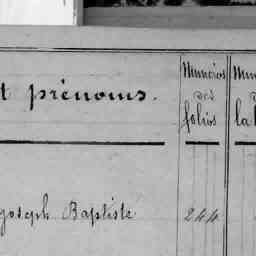 t prénoms.
Numéros des folios
Joseph Baptiste 244